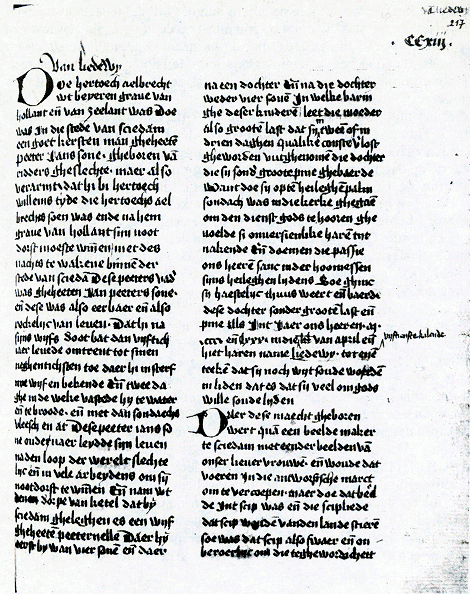 van liedewy
217
CCxiij.
Van liedewy
Doe hertoech aelbrecht
wt beyeren graue van
hollant en̄ van zeelant was Doe
was In die stede van sciedam
een goet kersten man gheheeten
peeter Jans sone · gheboren vā
ridders gheslechte · maer also
verarmt dat hi bi hertoech
willems tyde die hertoechs ael
brechts soen was ende na hem
graue van hollant sijn noot
dorst moeste winnen met des
nachts te wakene binnen der
stede van
was gheheeten Jan peeters sone ·
en̄ dese was also eerbaer en̄ also
van leuen · Dat hi na
sijns wijfs doot bat dan vijftich
iaer leuede omtrent tot sinen
neghentichsten toe daer hi in sterf
wijf en bekende En̄ twee da
ghe in de weke vastede hy te water
en̄ te broode · en̄ met dan sondaechs
vleesch en at Dese peeter ians so
ne voer leydde sijn leuen
na den loop der werelt slechte
lijc en̄ in vele arbeydens om sijn
nootdorst te winnen En̄ nam wt
denen dorpe van ketel dat by
sciedam gheleghen es een wijf
gheheeten peeternelle Daer hy
eerst bi wan vier sonen en̄ daer
na een dochter En̄ na die dochter
weder vier sonen In welke barin
ghe deser kinderen leet die moeder
also groote last dat sij twee of in
drien daghen qualike conste verlost
gheworden wtghenomen die dochter
die si sonder groote pine ghebaerde
Want doe si opten heileghen palm
sondach was in die kerke ghegaen
om den dienst gods te hooren ghe
voelde si onuersienlike haren tijt
nakende En̄ doemen die passie
ons heeren sanc in der hoomessen
sijns heileghen lydens Doe ghinc
si haestelijc thuus weert en̄ baerde
dese dochter sonder groote last en̄
pine alle Int Jaer ons heeren · m ·
van april en̄
hiet haren name liedewy · tot een
teeken dat sij noch wijt soude worden
in liden dat es dat sij veel om gods
wille soude lyden
Daer dese maecht gheboren
wert quam een beelde maker
te sciedam met eender beelden van
onser lieuer vrouwen · en̄ woude dat
voeren In die antworpsche marct
om te vercoepen · maer doe dat beeld
de Int scip was en̄ die scipliede
dat scip wouden van den lande stieren
soe was dat scip also swaer en̄ on
beroerlijc om die teghewoordicheit